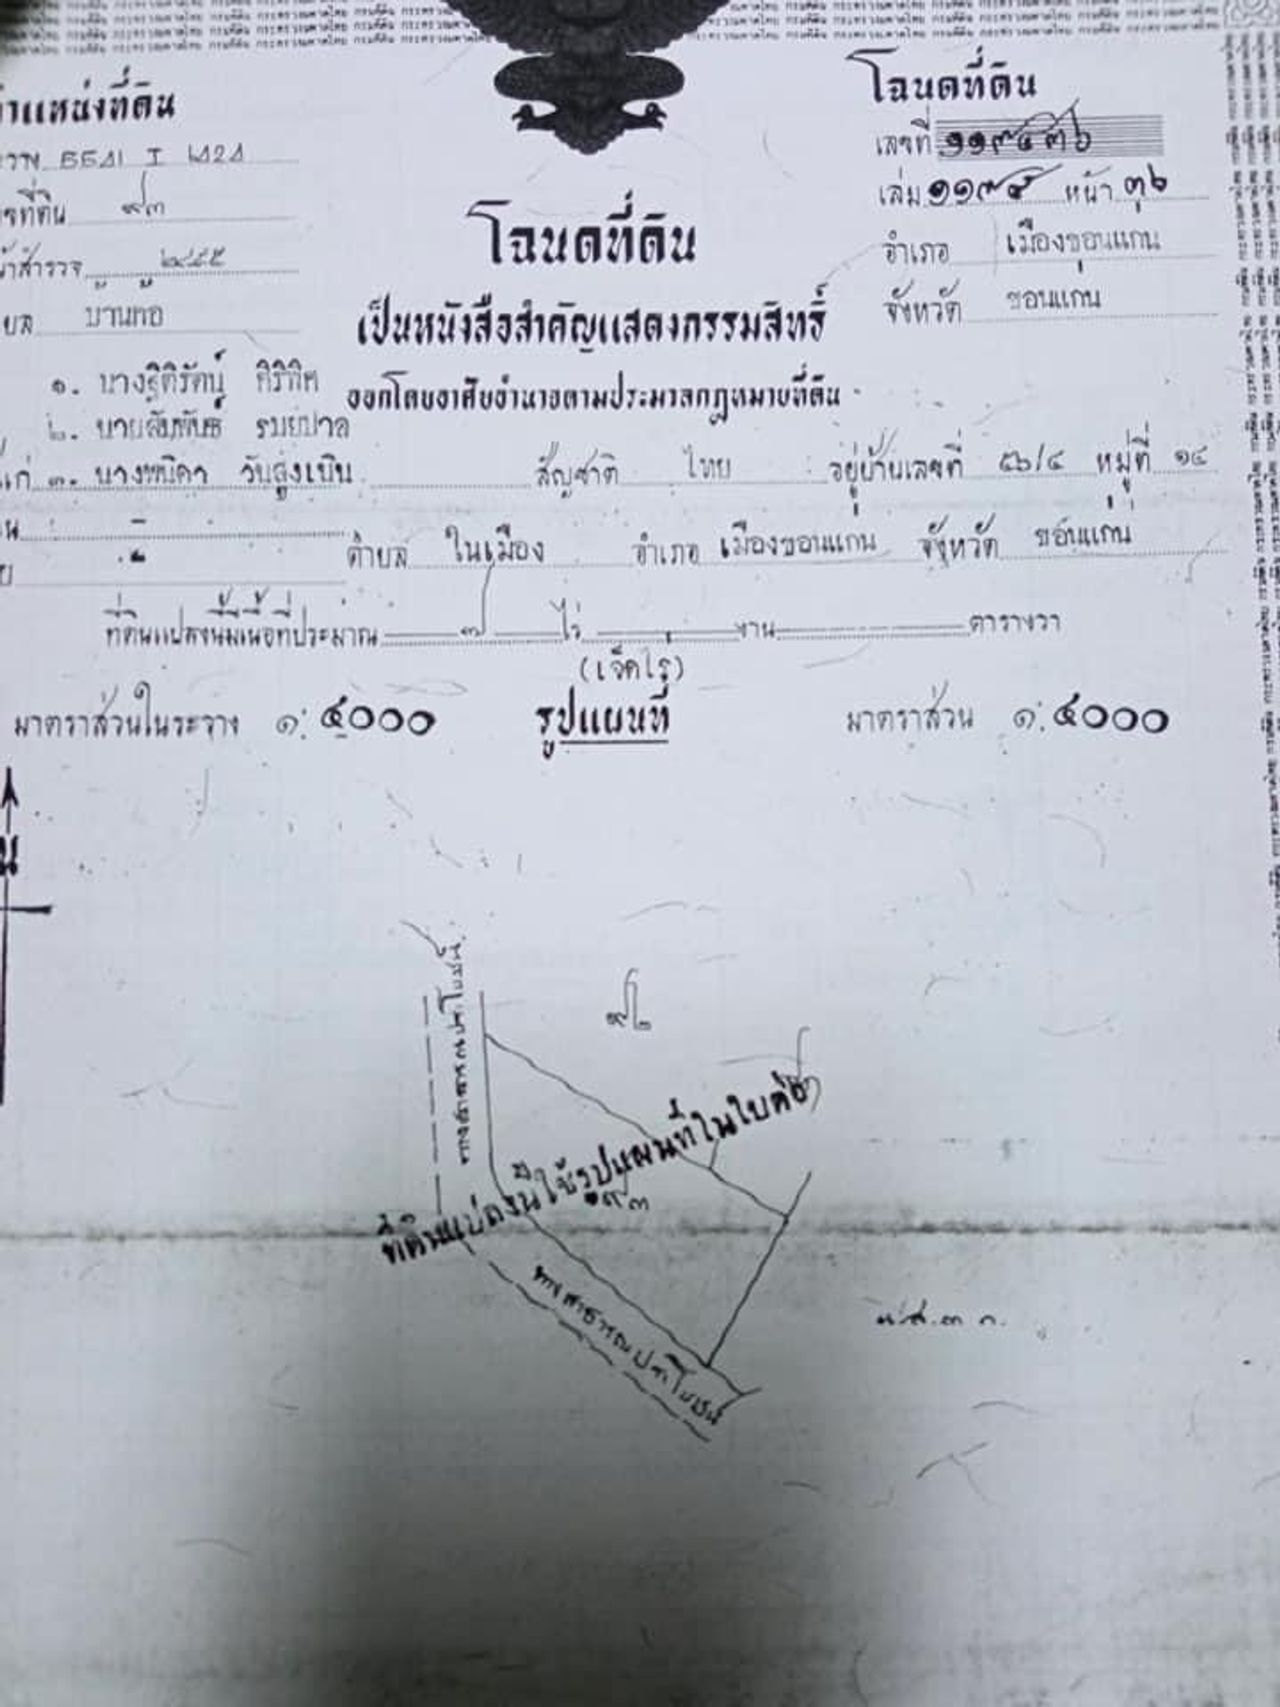 โฉนดที่ดิน
เลขที่ ๑๑๙๔๓๖
เล่ม ๑๑๙๕ หน้า ๓๖
อำเภอ เมืองขอนแก่น
จังหวัด ขอนแก่น
แหน่งที่ดิน
5541 I
ที่ดิน ๙๓
สำรวจ ๒๔๕๕
บ้านทุ่ม
โฉนดที่ดิน
เป็นหนังสือสำคัญแสดงกรรมสิทธิ์
ออกโดยอาศัยอำนาจตามประมวลกฎหมายที่ดิน
๑. นางฐิติรัตน์ ศิริทิศ
๒. นายสัมพันธ์ รมยปาล
๓. นางพนิดา วันสูงเนิน สัญชาติ ไทย อยู่บ้านเลขที่ ๕๖/๔ หมู่ที่ ๑๔
ตำบล ในเมือง อำเภอ เมืองขอนแก่น จังหวัด ขอนแก่น
ที่ดินแปลงนี้มีเนื้อที่ประมาณ ๗ ไร่ - งาน - ตารางวา
(เจ็ดไร่)
มาตราส่วนในระวาง ๑:๕๐๐๐ รูปแผนที่ มาตราส่วน ๑:๕๐๐๐
น
ทางสาธารณประโยชน์
๙๒
ที่ดินแปลงนี้ใช้รูปแผนที่ในใบต่อ
๙๓
ทางสาธารณประโยชน์
น.ส.๓ ก.